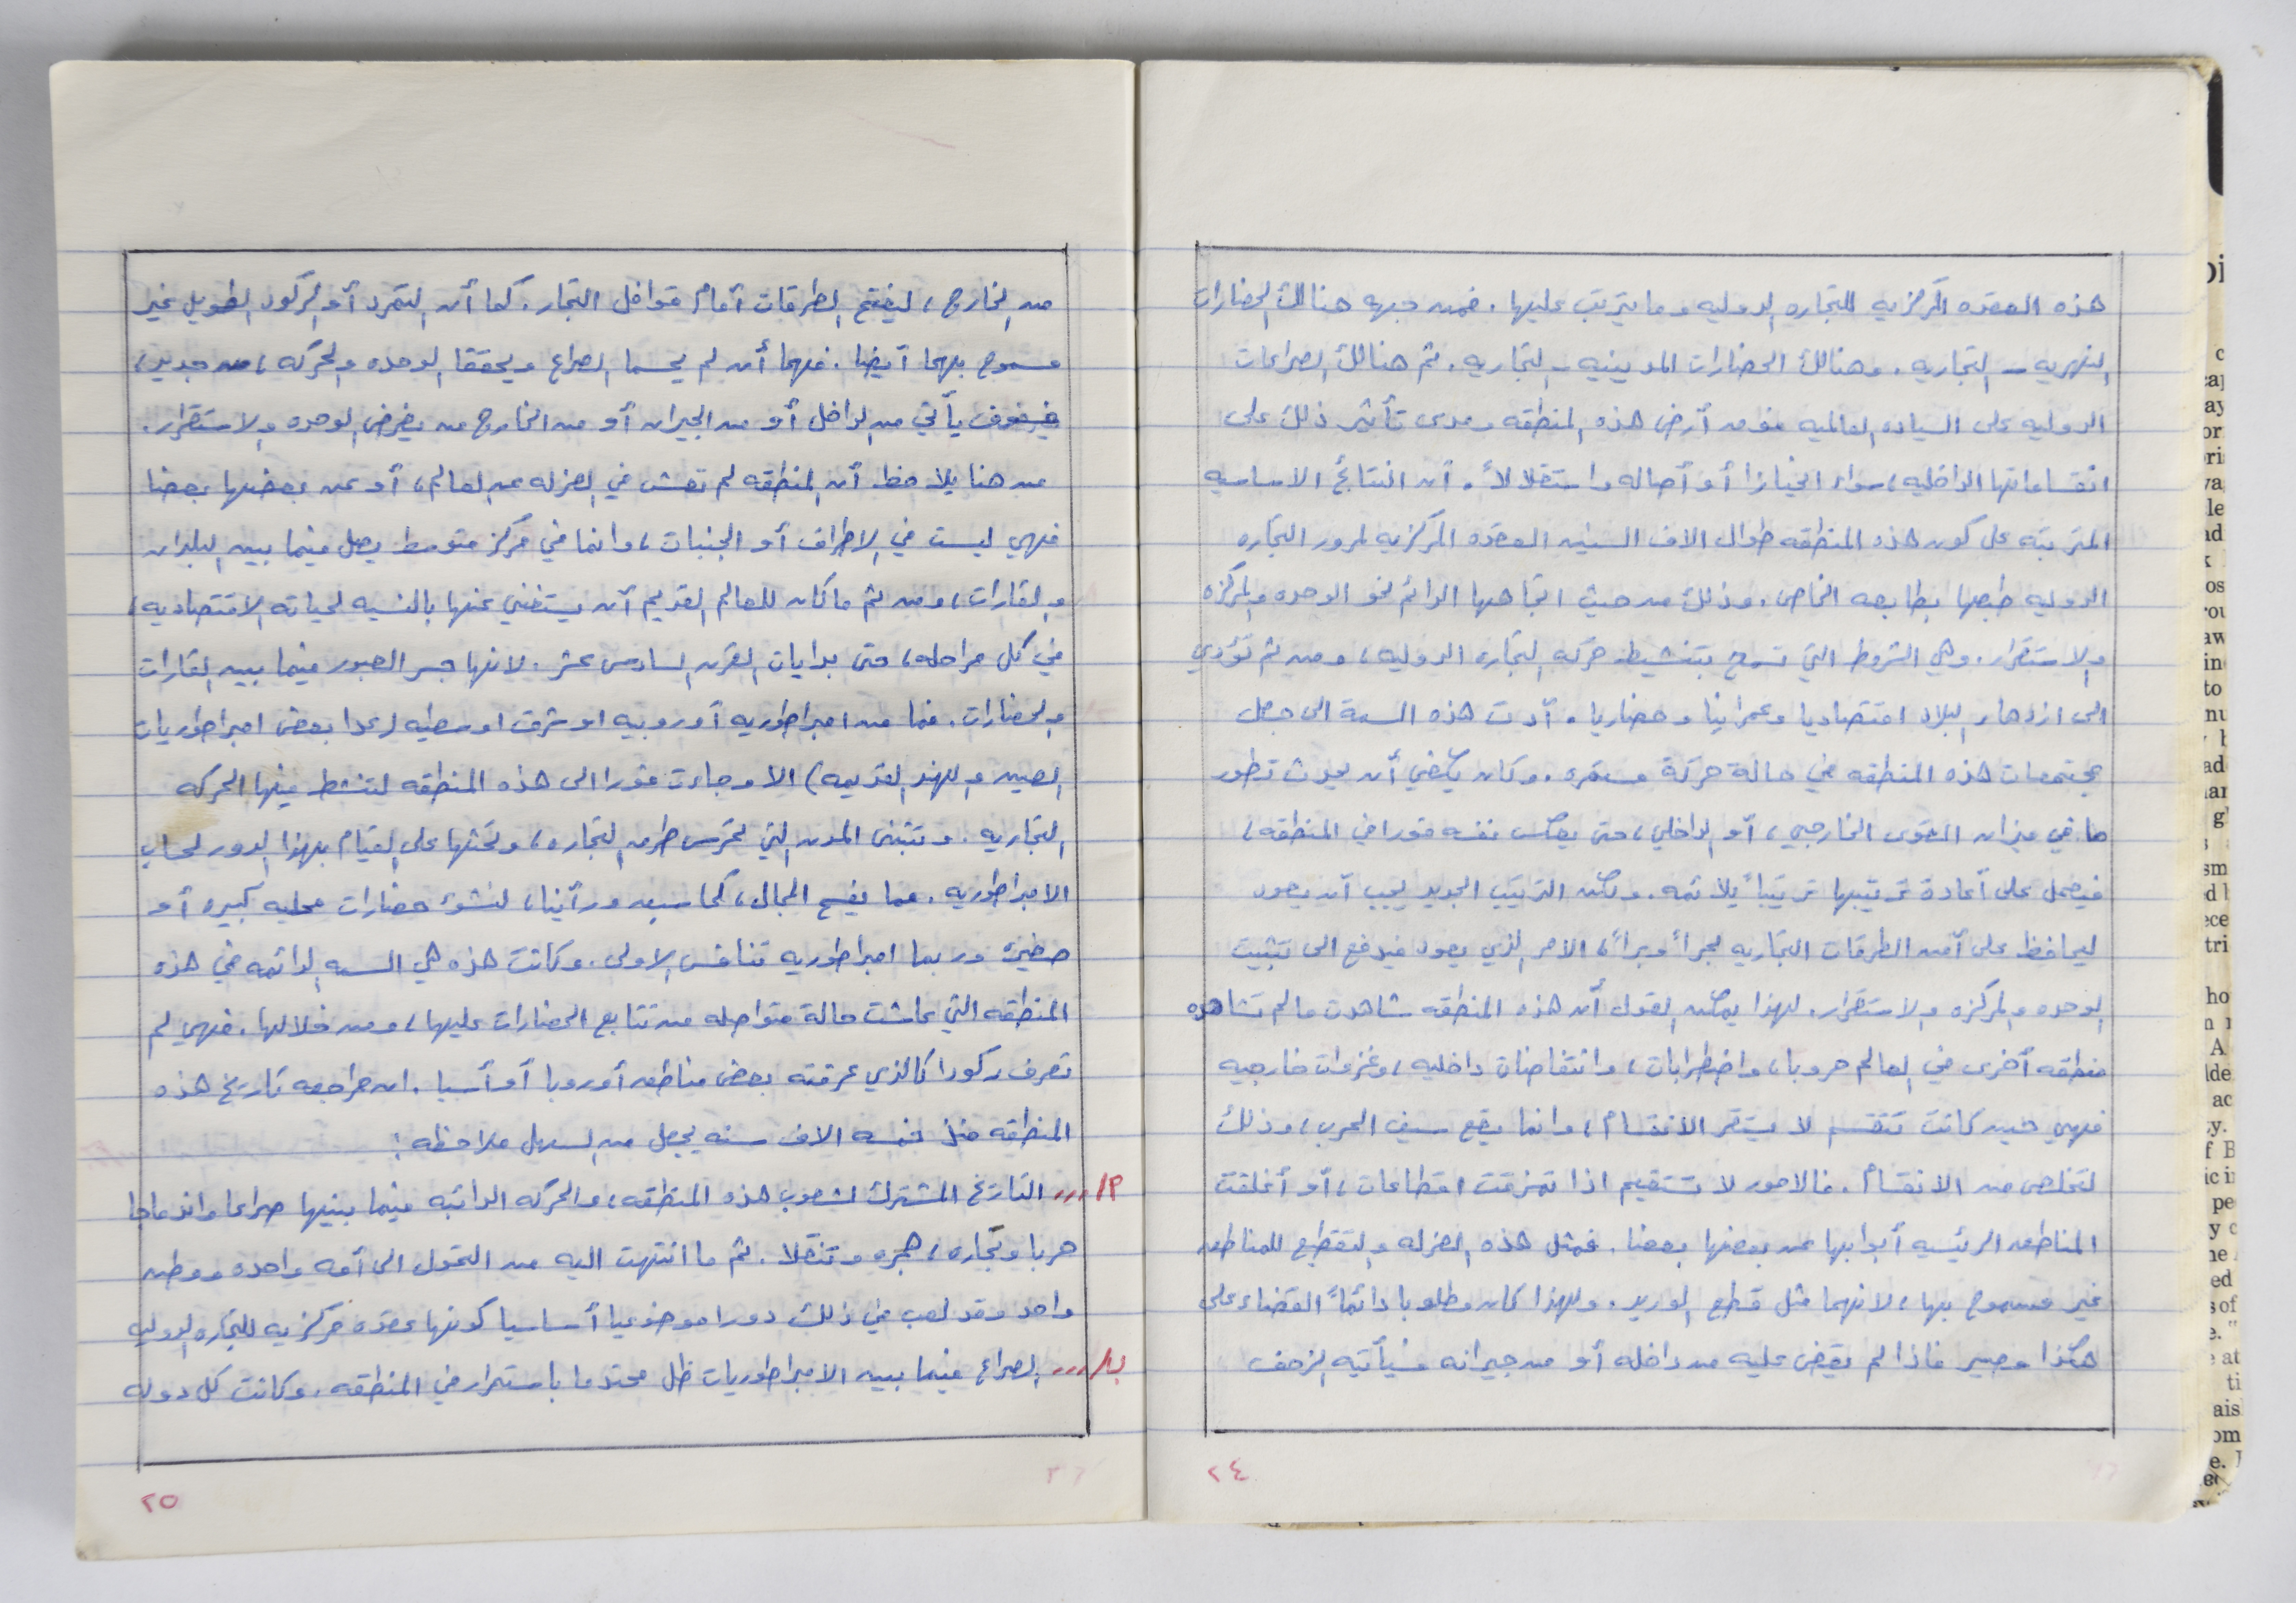 هذه العقده المركزيه للتجاره الدوليه وما يترتب عليها. فمن جهه هنالك الحضارات
النهريه - التجاريه. وهنالك الحضارات المدينيه - التجاريه. ثم هنالك الصراعات
الدوليه على السياده العالميه فوق أرض هذه المنطقه ومدى تأثير ذلك على
انقساماتها الداخليه، سواء انحيازا أو أصاله واستقلالاً. أن النتائج الاساسيه
المترتبه على كون هذه المنطقه طوال الاف السنين العقده المركزيه لمرور التجاره
الدوليه طبعها بطابعه الخاص. وذلك من حيث اتجاهها الدائم نحو الوحده والمركزه
والاستقرار. وهي الشروط التي تسمح بتنشيط حركه التجاره الدوليه، ومن ثم تؤدي
الى ازدهار البلاد اقتصاديا وعمرانيا وحضاريا. أدت هذه السمة الى جعل
مجتمعات هذه المنطقه في حالة حركة مستمره. وكان يكفي أن يحدث تطور
ما في ميزان القوى الخارجي، أو الداخلي، حتى يعكس نفسه فورا في المنطقه،
فيعمل على أعادة ترتيبها ترتيباً يلائمه. ولكن الترتيب الجديد يجب أن يعود
ليحافظ على أمن الطرقات التجاريه بحراً وبراً، الامر الذي يعود فيدفع الى تثبيت
الوحده والمركزه والاستقرار. لهذا يمكن القول أن هذه المنطقه شاهدت ما لم تشاهده
منطقه أخرى في العالم حروبا، واضطرابات، وانتفاضات داخليه، وغزوات خارجيه
فهي حين كانت تنقسم لا يستقر الانقسام، وانما يقع سيف الحرب، وذلك
لتخلص من الانقسام. فالامور لا تستقيم اذا تمزقت اقطاعات، أو أغلقت
المناطق الرئيسيه أبوابها عن بعضها بعضا. فمثل هذه العزله والتقطيع للمناطق
غير مسموح بها، لانهما مثل قطع الوريد. ولهذا كان مطلوبا دائماً القضاء على
هكذا مصير فاذا لم يقض عليه من داخله أو من جيرانه فسيأتيه الزحف
٢٤
من الخارج، ليفتح الطرقات أمام قوافل التجار. كما أن التمرد أو الركود الطويل غير
مسموح بهما أيضا. فهما أن لم يحسما الصراع ويحققا الوحده والحركه، من جديد،
فسوف يأتي من الداخل أو من الجيران أو من الخارج من يفرض الوحده والاستقرار.
من هنا يلاحظ أن المنطقه لم تعش في العزله عن العالم، أو عن بعضها بعضا
فهي ليست في الاطراف أو الجنبات، وانما في مركز متوسط يصل فيما بين البلدان
والقارات، ومن ثم ما كان للعالم القديم أن يستغني عنها بالنسبه لحياته الاقتصاديه،
في كل مراحله، حتى بدايات القرن السادس عشر. لانها جسر العبور فيما بين القارات
والحضارات. فما من امبراطوريه أوروبيه او شرق اوسطيه (عدا بعض امبراطوريات
الصين والهند القديمه) الا وجاءت فورا الى هذه المنطقه لتنشط فيها الحركه
التجاريه. وتتبنى المدن التي تحرس طرق التجاره، وتحثها على القيام بهذا الدور لحساب
الامبراطوريه. مما يفسح المجال، كما سبق ورأينا، لنشوء حضارات محليه كبيره أو
صغيرة وربما امبراطوريه تنافس الاولى. وكانت هذه هي السمه الدائمه في هذه
المنطقه التي عاشت حالة متواصله من تتابع الحضارات عليها، ومن خلالها. فهي لم
تعرف ركودا كالذي عرفته بعض مناطق أوروبا أو أسيا. ان مراجعه تاريخ هذه
المنطقه منذ خمسه الاف سنه يجعل من السهل ملاحظه:
١٣/... التاريخ المشترك لشعوب هذه المنطقه، والحركه الدائبه فيما بينها صراعا واندماجا
حربا وتجاره، هجره وتنقلا. ثم ما انتهت اليه من التحول الى أمه واحده ووطن
واحد وقد لعب في ذلك دورا موضوعيا أساسيا كونها عقده مركزيه للتجاره الدوليه
ب/... الصراع فيما بين الامبراطوريات ظل محتدما باستمرار في المنطقه. وكانت كل دوله
٢٥